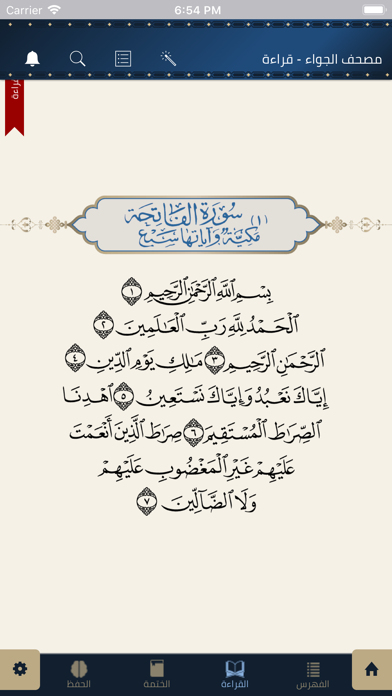 Carrier 6:54 PM
مصحف الجواء - قراءة
قراءة
(١) سورة الفاتحة
مكية وآياتها سبع
بِسْمِ ٱللَّهِ ٱلرَّحْمَٰنِ ٱلرَّحِيمِ ١
ٱلْحَمْدُ لِلَّهِ رَبِّ ٱلْعَٰلَمِينَ ٢
ٱلرَّحْمَٰنِ ٱلرَّحِيمِ ٣ مَٰلِكِ يَوْمِ ٱلدِّينِ ٤
إِيَّاكَ نَعْبُدُ وَإِيَّاكَ نَسْتَعِينُ ٥ ٱهْدِنَا
ٱلصِّرَٰطَ ٱلْمُسْتَقِيمَ ٦ صِرَٰطَ ٱلَّذِينَ أَنْعَمْتَ
عَلَيْهِمْ غَيْرِ ٱلْمَغْضُوبِ عَلَيْهِمْ
وَلَا ٱلضَّآلِّينَ ٧
الفهرس القراءة الختمة الحفظ